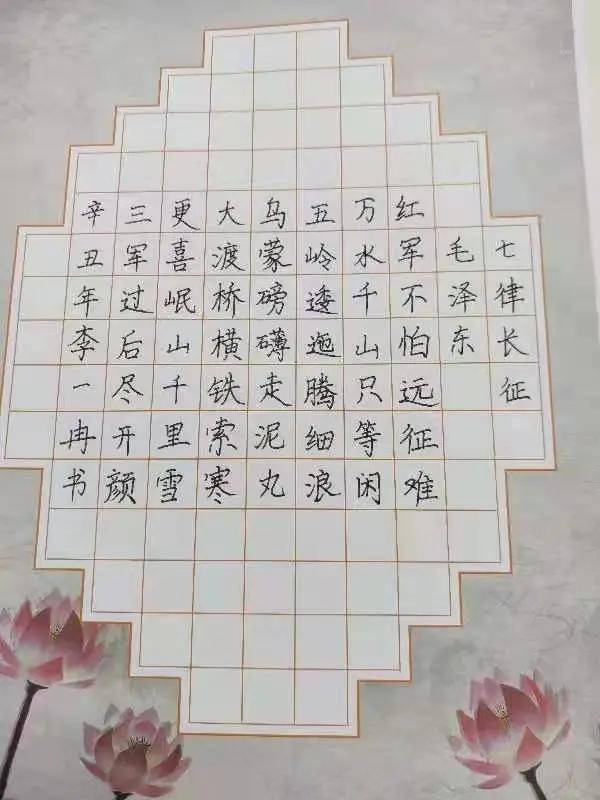 七律长征
毛泽东
红军不怕远征难
万水千山只等闲
五岭逶迤腾细浪
鸟蒙磅礴走泥丸
大渡桥横铁索寒
更喜岷山千里雪
三军过后尽开颜
辛丑年李一冉书